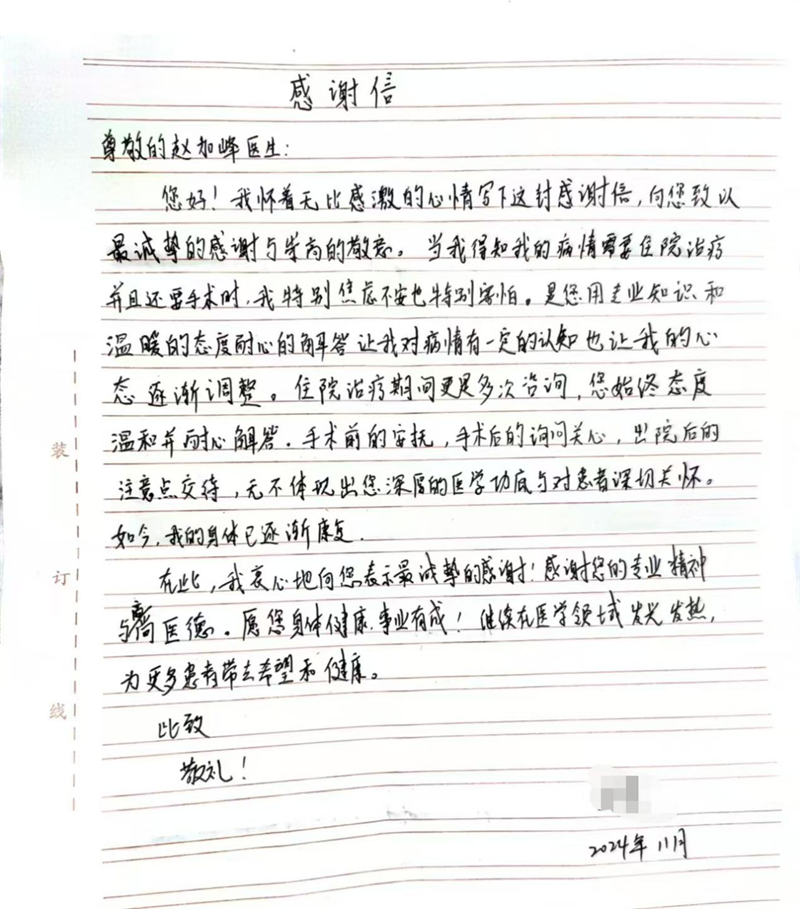 感谢信
尊敬的赵加峰医生：
您好！我怀着无比感激的心情写下这封感谢信，向您致以
最诚挚的感谢与崇高的敬意。当我得知我的病情需要住院治疗
并且还要手术时，我特别焦虑不安也特别害怕。是您用专业知识和
温暖的态度耐心的解答让我对病情有一定的认知也让我的心
态逐渐调整。住院治疗期间更是多次咨询，您始终态度
温和并耐心解答。手术前的安抚，手术后的询问关心，出院后的
注意点交待，无不体现出您深厚的医学功底与对患者深切关怀。
如今，我的身体已逐渐康复.
在此，我衷心地向您表示最诚挚的感谢！感谢您的专业精神
与高尚医德。愿您身体健康.事业有成！继续在医学领域发光发热，
为更多患者带去希望和健康。
此致
敬礼！
2024年11月
装
订
线